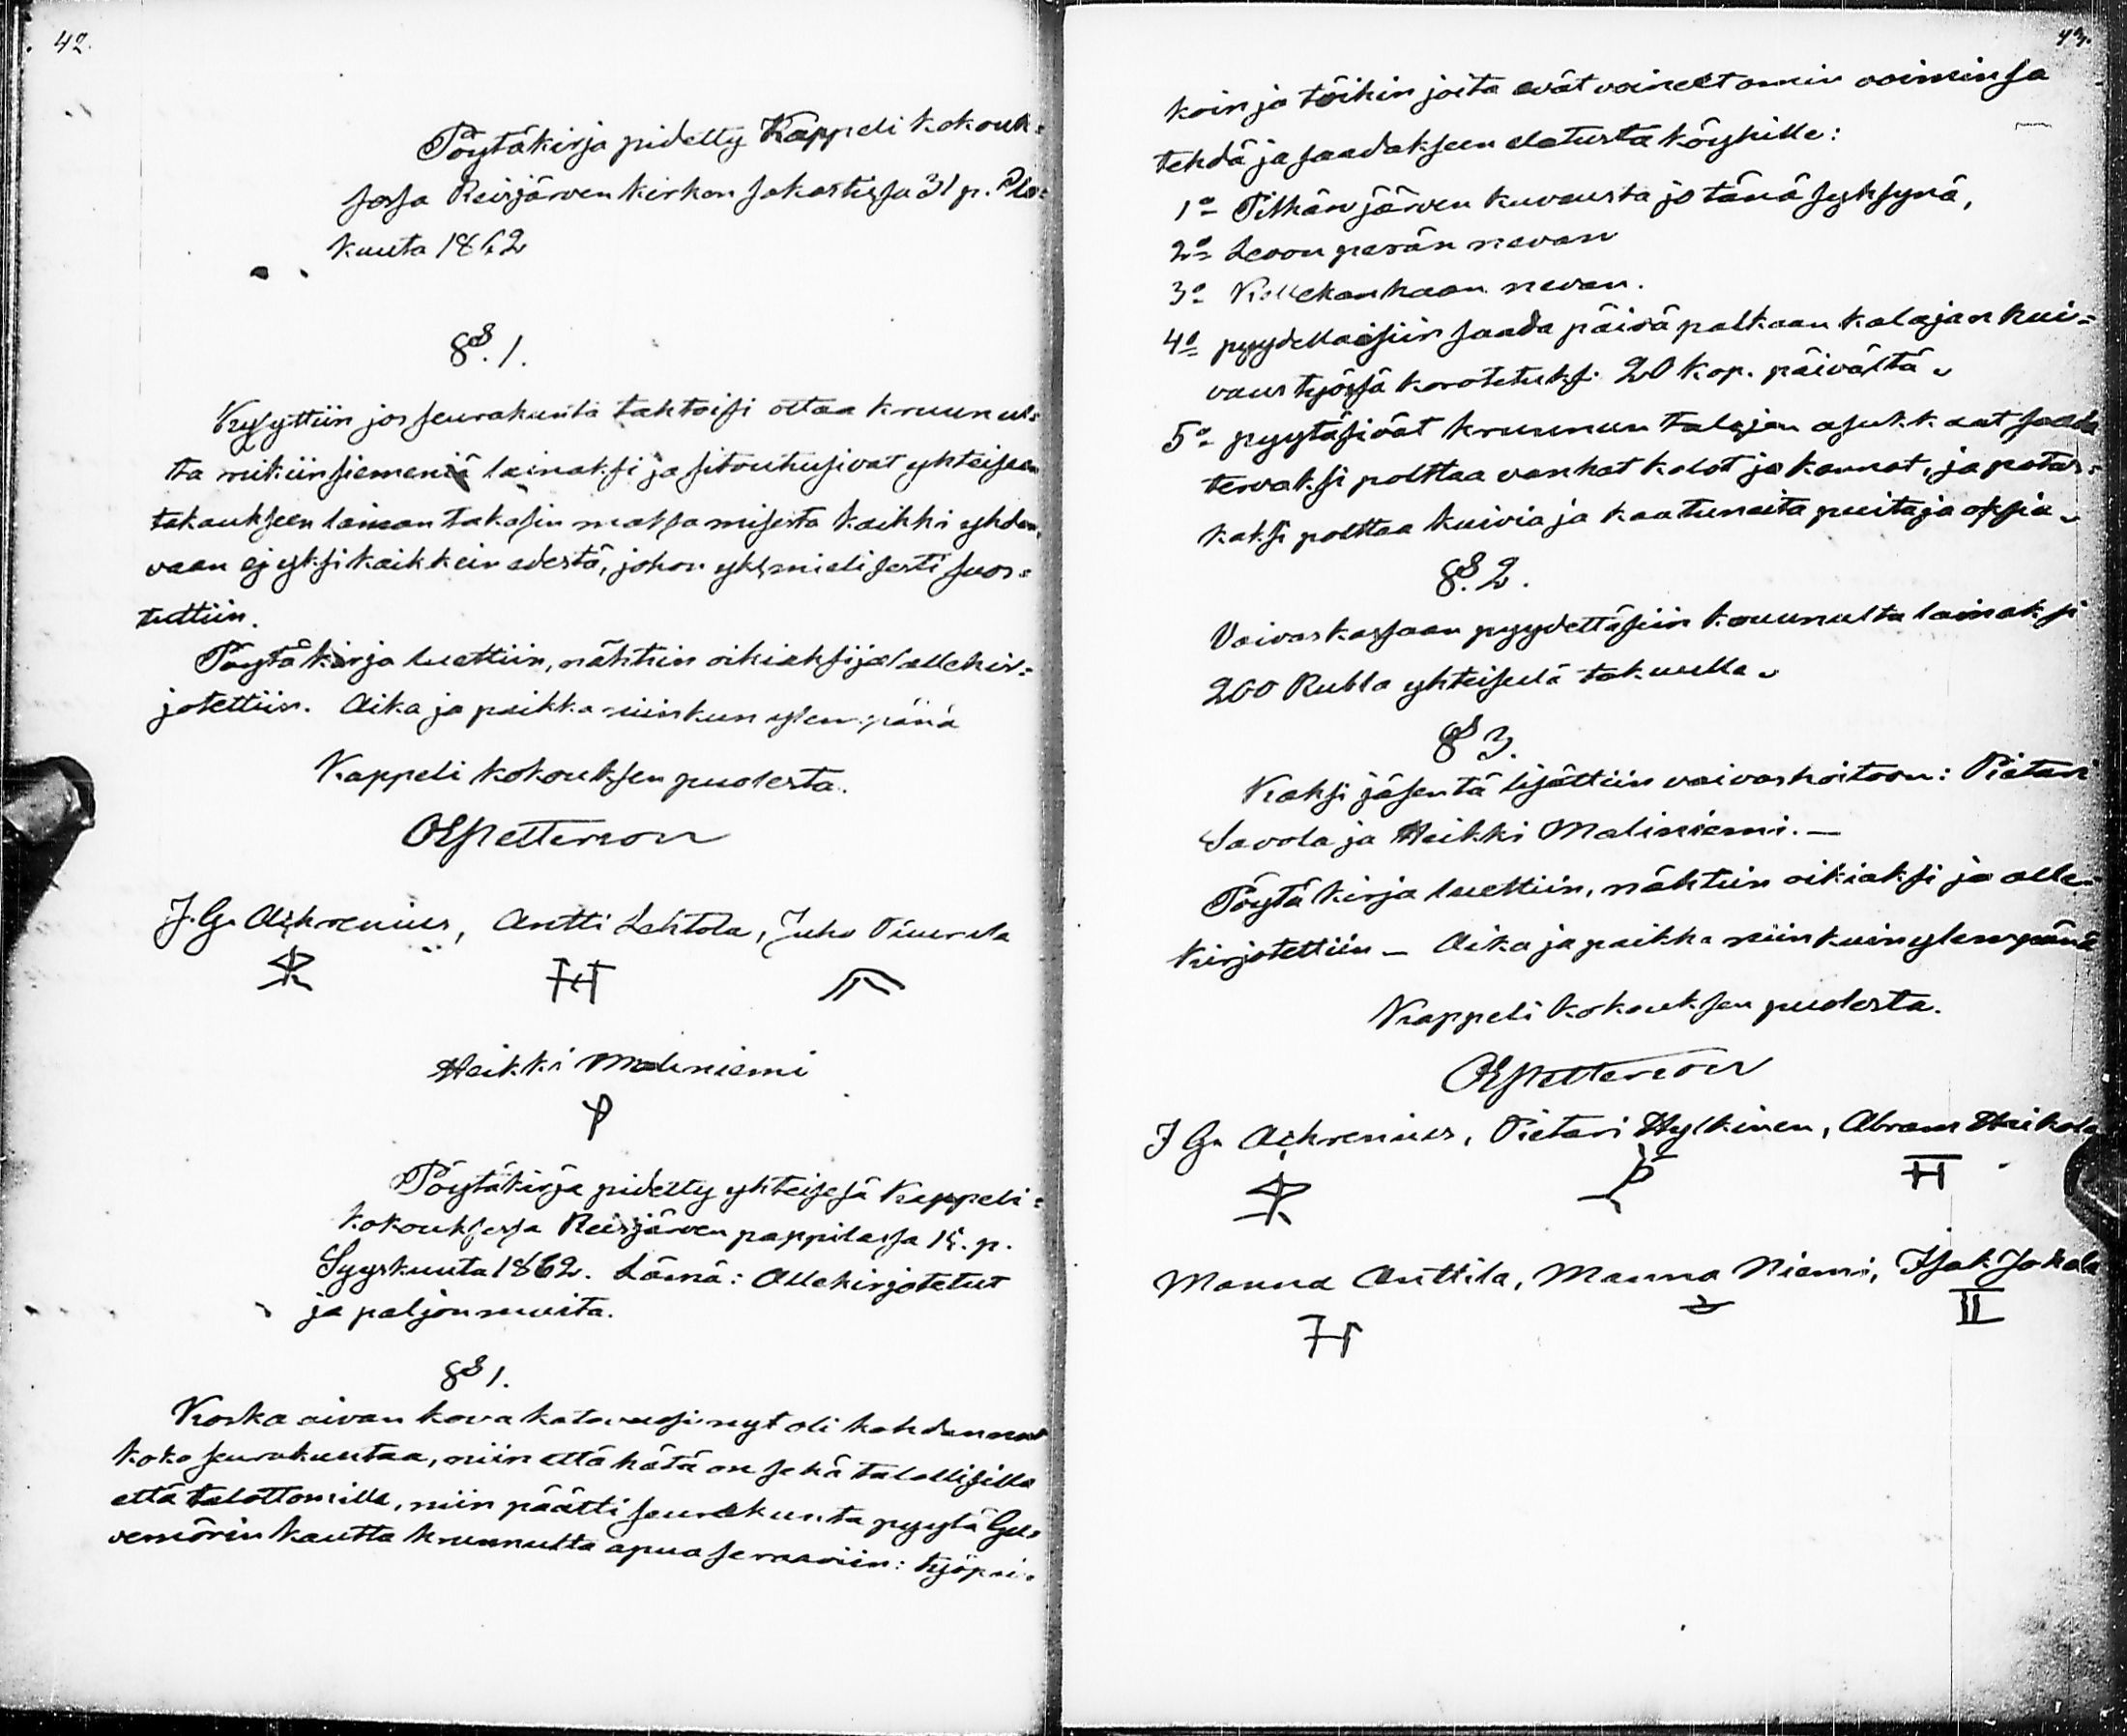 42.
Pöytäkirja pidetty Kappeli kokouk=
sessa Reisjärven kirkon sakastissa 31 p. Elo=
kuuta 1862
§. 1.
Kysyttiin jos seurakunta tahtoisi ottaa kruunul=
ta rukiin siemeniä lainaksi ja sitoutusivat yhteiseen
takaukseen lainan takasin maksamisesta kaikki yhden,
vaan ej yksi kaikkein edestä, johon yksmielisesti suos=
tuttiin.
Pöytäkirja luettiin, nähtiin oikiaksi ja allekir=
jotettiin. Aika ja paikka niinkun ylempänä
Kappeli kokouksen puolesta.
OEPetterson
J. G. Achrenius, Antti Lehtola, Juho Tiurula
Heikki Maliniemi
Pöytäkirja pidetty yhteisesä Kappeli=
kokouksessa Reisjärven pappilassa 15. p.
Syyskuuta 1862. Läsnä: Allekirjotetut
ja paljon muita.
§ 1.
Koska aivan kova katovuosi nyt oli kohdannut
koko seurakuntaa, niin että hätä on sekä talollisilla
että talottomilla, niin päätti seurakunta pyytä Gu=
vernörin kautta kruunulta apua seuraaviin: työpai=
43.
koin ja töihin joita evät voineet omin voiminsa
tehdä ja saadakseen elatusta köyhille:
1o Pitkänjärven kuvausta jo tänä syksynä,
2o Levonperän nevan
3o Kellokankaan nevan.
4o pyydettäisiin saada päiväpalkaan Kalajan kui=
vaus työssä korotetuksi 20 kop. päivältä.
5o pyytäsivät kruunun talojen asukkaat saada
tervaksi polttaa vanhat kelot ja kannot, ja potas=
kaksi polttaa kuivia ja kaatuneita puita ja oksia.
§. 2.
Vaivaskassaan pyydettäsiin kruunulta lainaksi
200 Rubla yhteiselä takuulla.
§ 3.
Kaksi jäsentä lisättiin vaivashoitoon: Pietari
Savola ja Heikki Maliniemi. —
Pöytäkirja luettiin, nähtiin oikiaksi ja alle
kirjotettiin — Aika ja paikka niinkuin ylempänä
Kappeli kokouksen puolesta.
OEPetterson
J G. Achrenius, Pietari Hylkinen, Abram Heikola
Manna Anttila, Manna Niemi, Isak Jokela